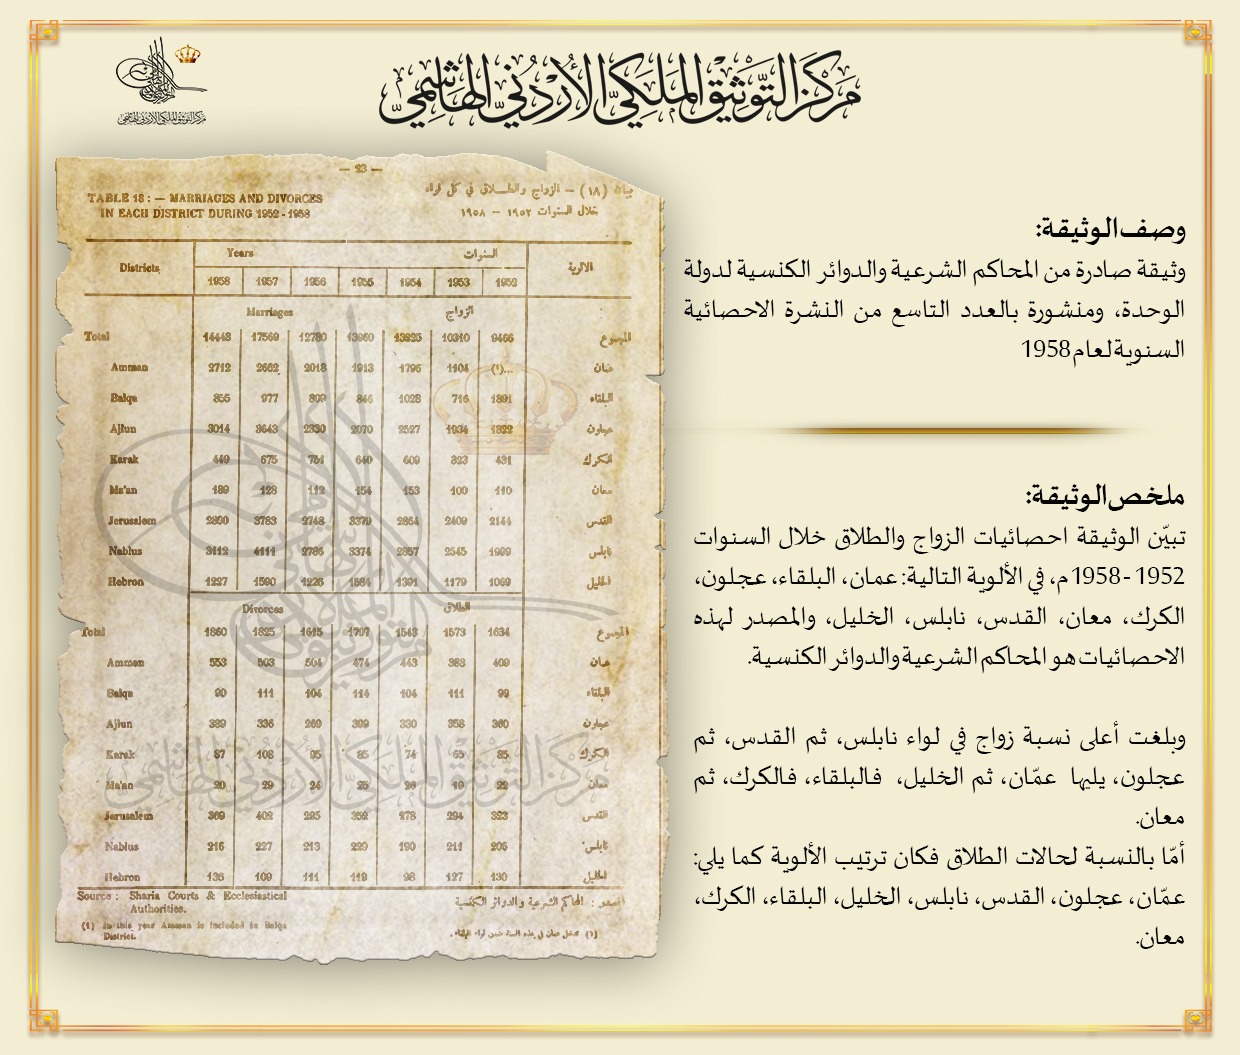 مركز التوثيق الملكي الأردني الهاشمي
مركز التوثيق الملكي الأردني الهاشمي
وصف الوثيقة:
وثيقة صادرة من المحاكم الشرعية والدوائر الكنسية لدولة
الوحدة، ومنشورة بالعدد التاسع من النشرة الاحصائية
السنوية لعام 1958
ملخص الوثيقة:
تبيّن الوثيقة احصائيات الزواج والطلاق خلال السنوات
1952 - 1958 م، في الألوية التالية: عمان، البلقاء، عجلون،
الكرك، معان، القدس، نابلس، الخليل، والمصدر لهذه
الاحصائيات هو المحاكم الشرعية والدوائر الكنسية.
وبلغت أعلى نسبة زواج في لواء نابلس، ثم القدس، ثم
عجلون، يليها عمّان، ثم الخليل، فالبلقاء، فالكرك، ثم
معان.
أمّا بالنسبة لحالات الطلاق فكان ترتيب الألوية كما يلي:
عمّان، عجلون، القدس، نابلس، الخليل، البلقاء، الكرك،
معان.
— 23 —
TABLE 18 : — MARRIAGES AND DIVORCES
IN EACH DISTRICT DURING 1952 - 1958
(١٨) – الزواج والطلاق في كل لواء
خلال السنوات ١٩٥٢ – ١٩٥٨
Districts Years السنوات الالوية
1958 1957 1956 1955 1954 1953 1952
Marriages الزواج
Total 14448 17569 12780 10310 9466 المجموع
Amman 2712 2662 2018 1913 1796 1104 (١)... عمان
Balqa 855 977 809 846 1028 716 1891 البلقاء
Ajlun 3014 3643 2330 2070 2527 1934 1322 عجلون
Karak 449 675 751 640 609 323 431 الكرك
Ma'an 189 128 112 154 153 100 110 معان
Jerusalem 3783 2748 3379 2864 2409 2144 القدس
Nablus 3112 4111 2786 3374 2857 2545 1999 نابلس
Hebron 1227 1590 1226 1584 1391 1179 1069 الخليل
Divorces الطلاق
Total 1860 1825 1615 1707 1543 1573 1634 المجموع
Amman 553 503 504 474 443 388 409 عمان
Balqa 90 111 104 114 104 111 99 البلقاء
Ajlun 389 336 269 399 330 358 360 عجلون
Karak 87 108 95 85 74 65 85 الكرك
Ma'an 20 29 24 25 26 19 22 معان
Jerusalem 369 402 295 352 278 294 323 القدس
Nablus 216 227 213 229 190 211 206 نابلس
Hebron 136 109 111 119 98 127 130 الخليل
Source : Sharia Courts & Ecclesiastical
Authorities.
المصدر : المحاكم الشرعية والدوائر الكنسية
(1) In this year Amman is included in Balqa
District.
(١) تدخل عمان في هذه السنة ضمن لواء البلقاء.
مركز التوثيق الملكي الأردني الهاشمي